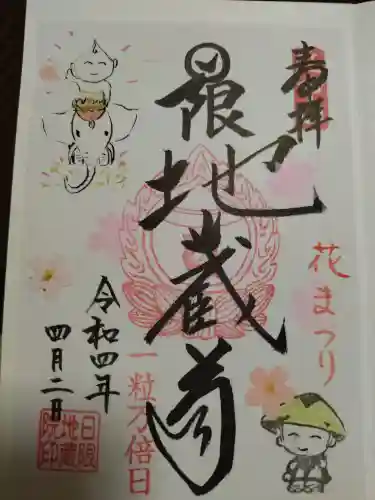 奉拝
日限地蔵尊
花まつり
一粒万倍日
令和四年
四月二日
日限
地蔵
院印